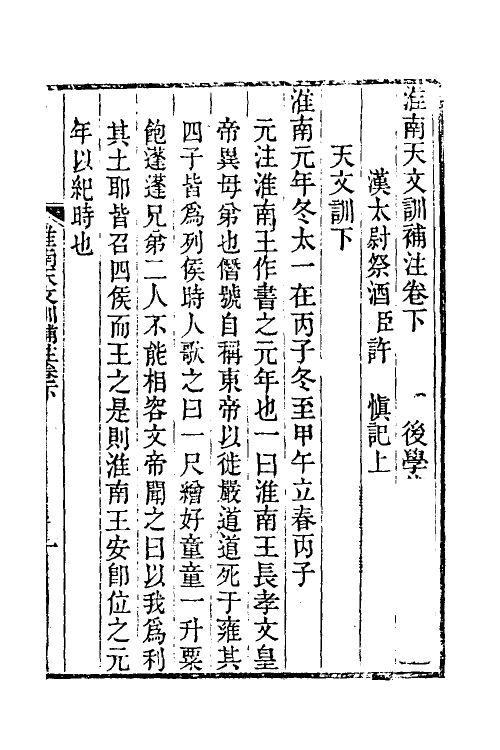 淮南天文訓補注卷下
後學
漢太尉祭酒臣許 慎記上
天文訓下
淮南元年冬太一在丙子冬至甲午立春丙子
元注淮南王作書之元年也一曰淮南王長孝文皇
帝異母弟也僭號自稱東帝以徙嚴道道死于雍其
四子皆爲列侯時人歌之曰一尺繒好童童一升粟
飽蓬蓬兄弟二人不能相容文帝聞之曰以我爲利
其土耶皆召四侯而王之是則淮南王安卽位之元
年以紀時也
淮南天文訓補注卷下
一